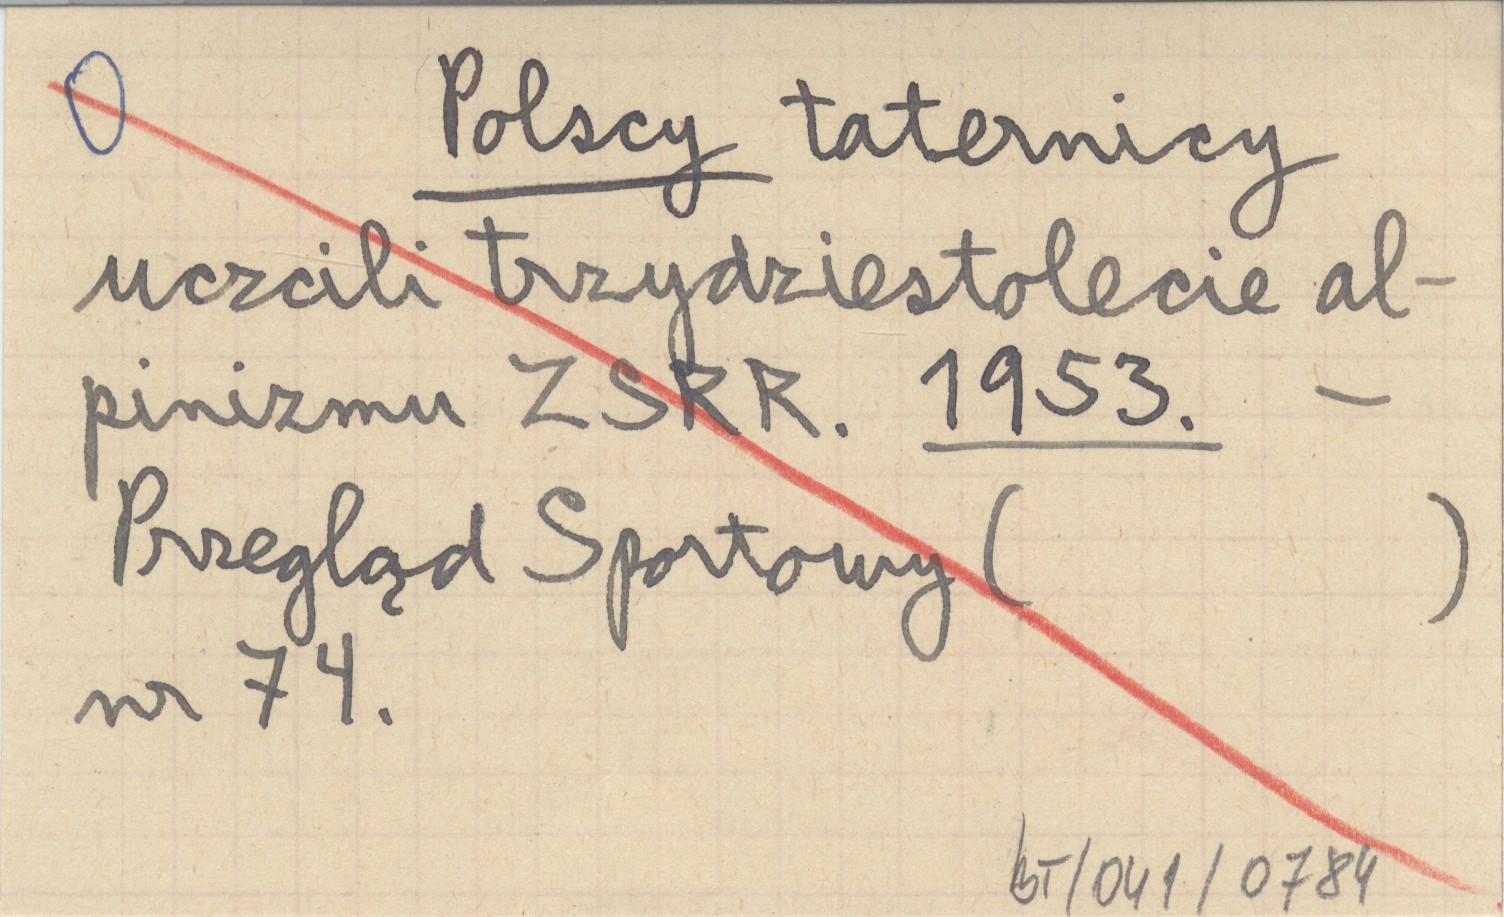 Polscy taternicy
uczcili trzydziestolecie al-
pinizmu ZSRR. 1953. –
Przegląd Sportowy (        )
nr 74.
BT/041/0784